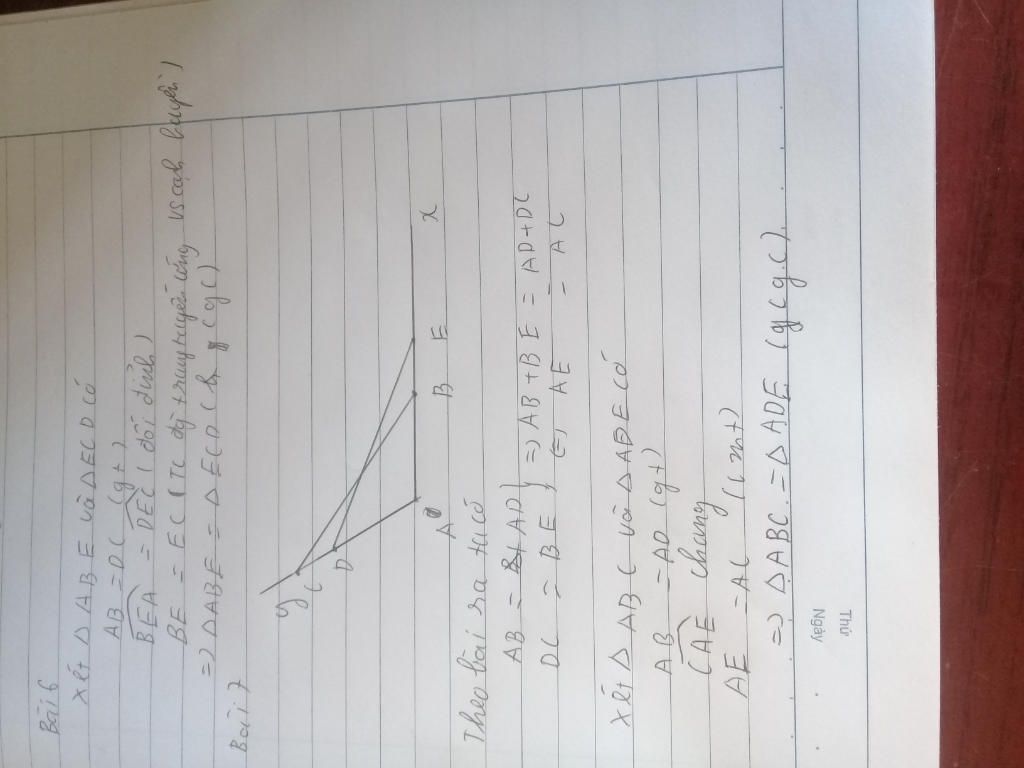 Bài 6
Xét △ ABE và △ ECD có
AB = DC (gt)
BEA = DEC (đối đỉnh)
BE = EC (Tc đg trung tuyến ứng vs cạnh huyền)
=> △ ABE = △ ECD (cgc)
Bài 7
y
C
D
A B E x
Theo bài ra ta có
AB = AD } => AB + BE = AD + DC
DC = BE } <=> AE = AC
Xét △ ABC và △ ADE có
AB = AD (gt)
CAE chung
AE = AC (cmt)
=> △ ABC = △ ADE (cgc).
Thứ
Ngày